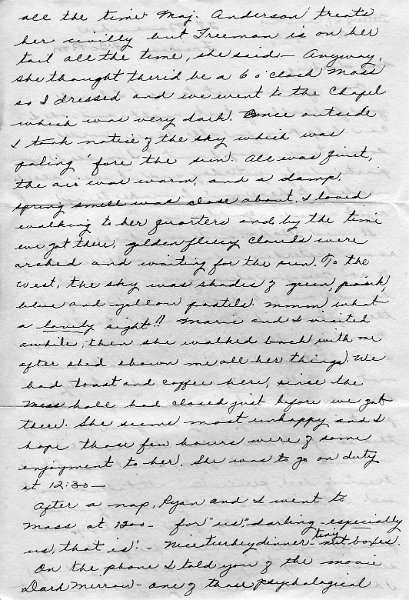 all the time. Maj. Anderson treats
her civilly but Freeman is on her
tail all the time, she said – Anyway,
she thought there'd be a 6 o'clock Mass
so I dressed and we went to the Chapel
which was very dark. Once outside
I took notice of the sky which was
paling 'fore the sun. All was quiet,
the air was warm, and a damp,
spring smell was close about. I loved
walking to her quarters and by the time
we got there, golden fleecy clouds were
arched and waiting for the sun. To the
west, the sky was shades of green, pinkish
blue and yellow pastels. Mmmm what
a lovely sight!! Marie and I visited
awhile, then she walked back with me
after she'd shown me all her things. We
had toast and coffee here, since the
Mess hall had closed just before we got
there. She seems most unhappy and I
hope those few hours were of some
enjoyment to her. She was to go on duty
at 12:30 —
After a nap, Ryan and I went to
Mass at – for "us" darling – especially
us, that is! – Nice turkey dinner – tiny boxes.
On the phone I told you of the movie
Dark Mirrow – one of those psychological